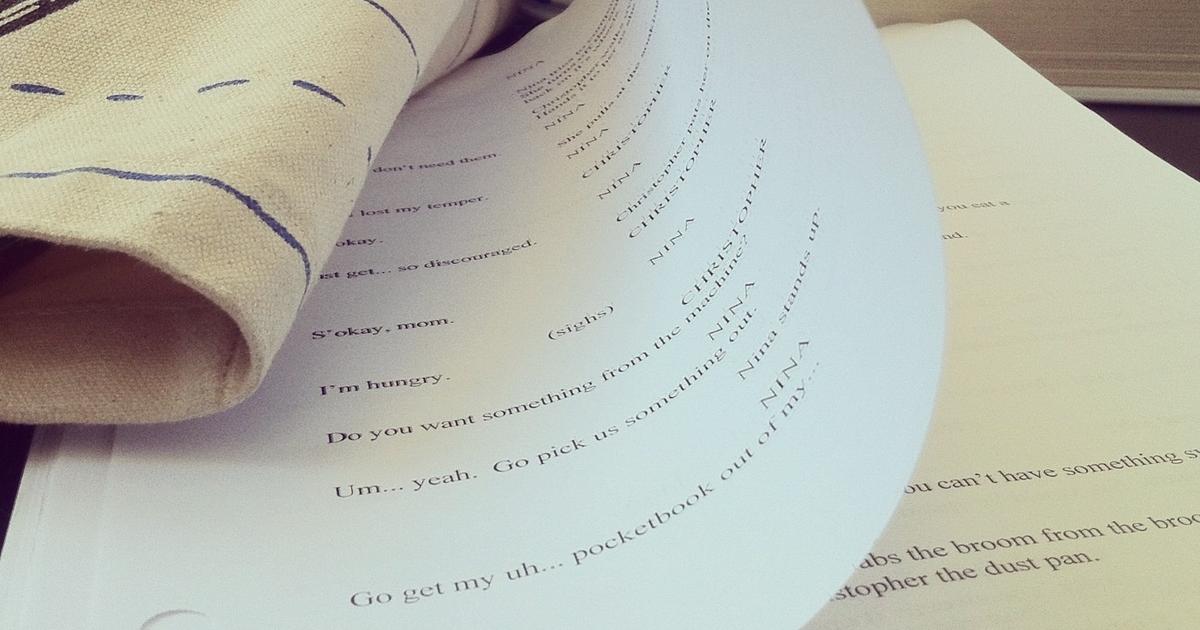 NINA
Nina
She
back on
NINA
don't need them.
She pulls at the
NINA
lost my temper.
CHRISTOPHER
okay.
NINA
ust get... so discouraged.
Christopher pats her on
CHRISTOPHER
S'okay, mom.
NINA
(sighs)
I'm hungry.
CHRISTOPHER
Do you want something from the machine?
NINA
Um... yeah. Go pick us something out.
Nina stands up.
NINA
Go get my uh... pocketbook out of my...
you eat a
nd.
ou can't have something
abs the broom from the
stopher the dust pan.